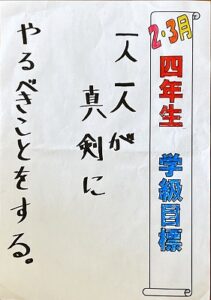 2・3月
四年生 学級目標
一人一人が
真剣に
やるべきことをする。